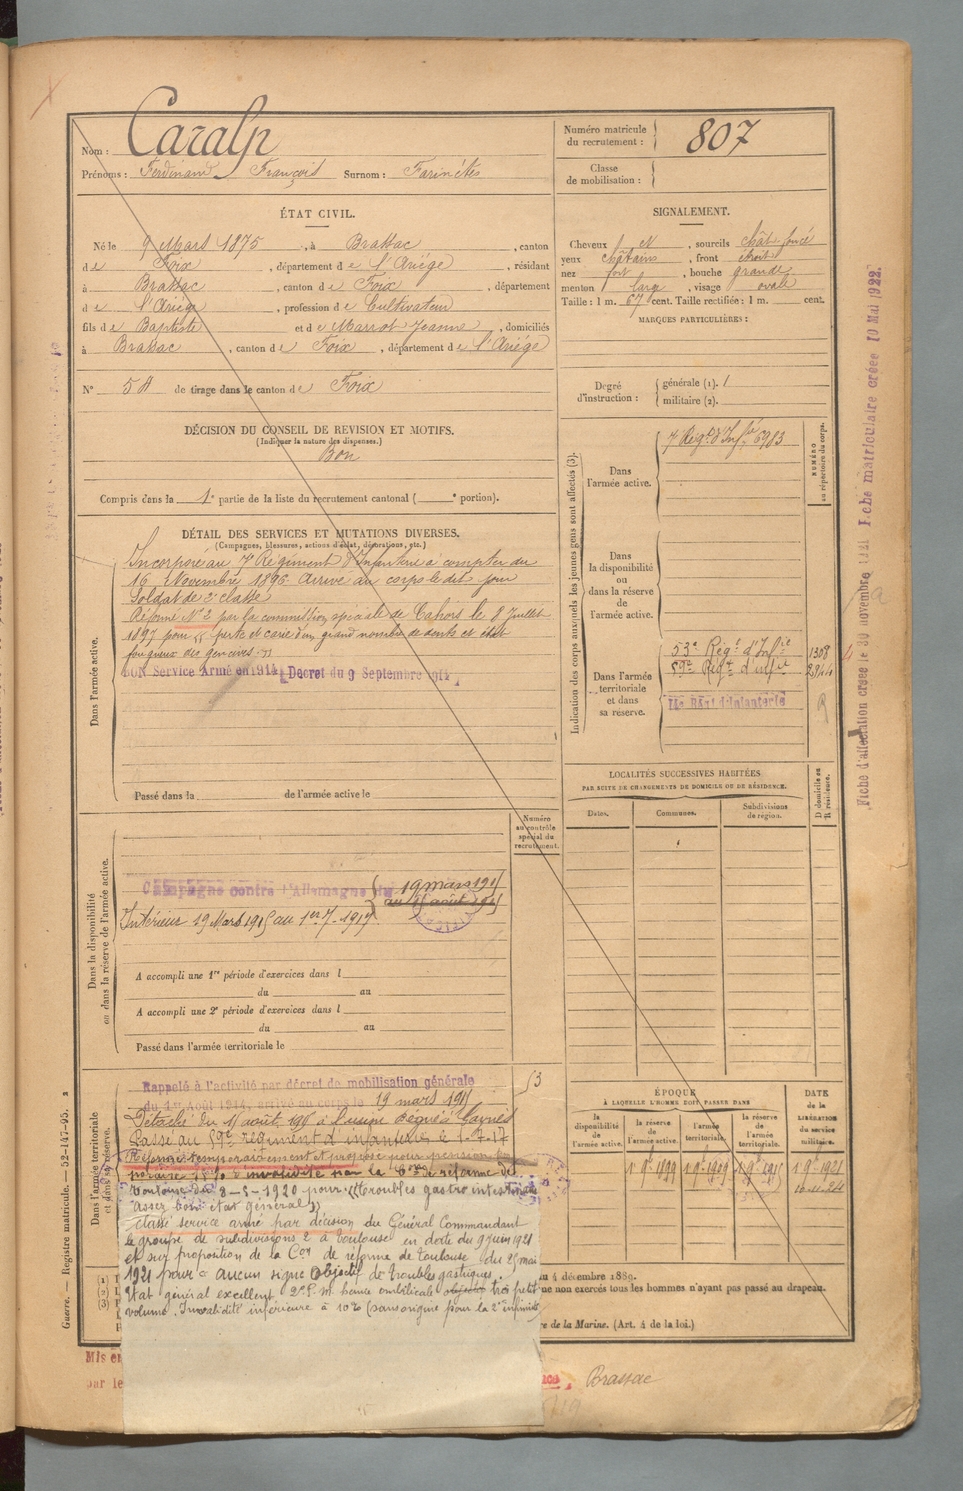 Nom : Caralp
Prénoms : Ferdinand François Surnom : Farinétes
Numéro matricule du recrutement : 807
Classe de mobilisation :
ÉTAT CIVIL.
Né le 9 Mars 1875, à Brassac, canton
de Foix, département de l'Ariége, résidant
à Brassac, canton de Foix, département
de l'Ariége, profession de Cultivateur
fils de Baptiste et de Marrot Jeanne, domiciliés
à Brassac, canton de Foix, département de l'Ariége
N° 58 de tirage dans le canton de Foix
SIGNALEMENT.
Cheveux et sourcils chât. foncé
yeux châtains, front étroit
nez fort, bouche grande
menton large, visage ovale
Taille : 1 m. 67 cent. Taille rectifiée : 1 m. cent.
MARQUES PARTICULIÈRES :
Degré d'instruction : générale (1). 1
militaire (2).
DÉCISION DU CONSEIL DE REVISION ET MOTIFS.
(Indiquer la nature des dispenses.)
Bon
Compris dans la 1e partie de la liste du recrutement cantonal ( e portion).
DÉTAIL DES SERVICES ET MUTATIONS DIVERSES.
(Campagnes, blessures, actions d'éclat, décorations, etc.)
Dans l'armée active.
Incorporé au 7e Régiment d'Infanterie à compter du
16 Novembre 1896 arrivé au corps le dit jour
Soldat de 2e classe
Réformé N° 2 par la commission spéciale de Cahors le 8 Juillet
1897 pour "perte et carie d'un grand nombre de dents et état
fongueux des gencives."
BON Service Armé en 1914 Decret du 9 Septembre 1914
Passé dans la de l'armée active le
Indication des corps auxquels les jeunes gens sont affectés (3).
NUMÉRO au répertoire du corps.
Dans l'armée active.
7e Régt d'Infie 6983
Dans la disponibilité ou dans la réserve de l'armée active.
Dans l'armée territoriale et dans sa réserve.
53e Régt d'Infie 1308
59e Régt d'Infie
14e Régt d'Infanterie
LOCALITÉS SUCCESSIVES HABITÉES
PAR SUITE DE CHANGEMENTS DE DOMICILE OU DE RÉSIDENCE.
Dates. Communes. Subdivisions de région. D domicile ou R résidence.
Dans la disponibilité ou dans la réserve de l'armée active.
Numéro au contrôle spécial du recrutement.
Campagne contre l'Allemagne du 19 mars 1915
au 15 août 1915
Intérieur 19 Mars 1915 au 1er 7. 1917
A accompli une 1re période d'exercices dans l
du au
A accompli une 2e période d'exercices dans l
du au
Passé dans l'armée territoriale le
Dans l'armée territoriale et dans sa réserve.
Rappelé à l'activité par décret de mobilisation générale
du 1er Août 1914, arrivé au corps le 19 mars 1915
Détaché du 15 août 1915 à l'usine
Passé au 59e régiment d'infanterie le 1-7-17
Réformé temporairement et proposé pour pension
15% d'invalidité par la Con de réforme de
Toulouse du 3-5-1920 pour "troubles gastro intestinaux
assez bon état général"
classé service armé par décision du Général Commandant
le groupe de subdivisions 2 à Toulouse en date du 9 juin 1921
et sur proposition de la Con de réforme de Toulouse du 25 mai
1921 pour "aucun signe objectif de troubles gastriques.
Etat général excellent. 2e P. M. hernie ombilicale très petit
volume. Invalidité inférieure à 10% (sans origine pour la 2e infirmité)
ÉPOQUE
À LAQUELLE L'HOMME DOIT PASSER DANS
la disponibilité de l'armée active. la réserve de l'armée active. l'armée territoriale. la réserve de l'armée territoriale.
DATE de la LIBÉRATION du service militaire.
1 9bre 1899 1 9bre 1909 1 9bre 1915 1 9bre 1921
du 4 décembre 1889.
que non exercés tous les hommes n'ayant pas passé au drapeau.
re de la Marine. (Art. 4 de la loi.)
Guerre. — Registre matricule. — 52-147-95. 2
Fiche d'affectation créée le 30 novembre 1921 Fiche matriculaire créée 10 Mai 1922.
Mis en
par le
Brassac